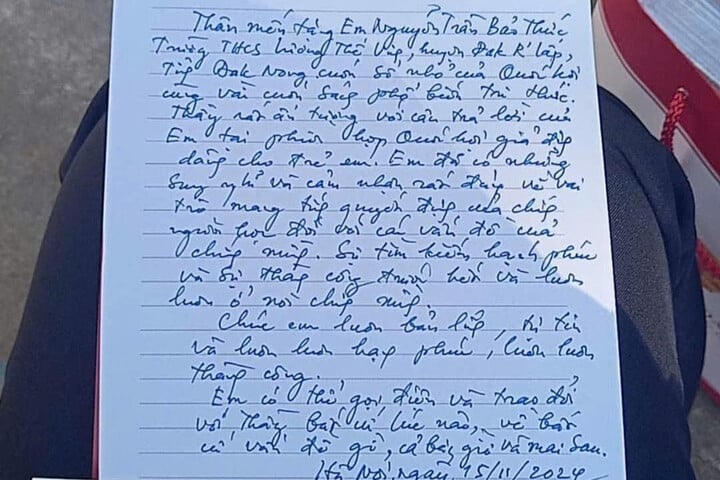 Thân mến tặng Em Nguyễn Trần Bảo Thức
Trường THCS Lương Thế Vinh, huyện Đắk R'Lấp,
Tỉnh Đak Nong cuốn sổ nhỏ của Quốc hội
cùng vài cuốn sách phổ biến tri thức.
Thầy rất ấn tượng với câu trả lời của
Em tại phiên họp Quốc hội giả định
dành cho trẻ em. Em đã có những
suy nghĩ và cảm nhận rất đúng về vai
trò mang tính quyết định của chính
người học đối với các vấn đề của
chúng mình. Sự tìm kiếm hạnh phúc
và sự thành công trước hết và luôn
luôn ở nơi chúng mình.
Chúc em luôn bản lĩnh, tự tin
và luôn luôn hạnh phúc, luôn luôn
thành công.
Em có thể gọi điện và trao đổi
với Thầy bất cứ lúc nào, về bất
cứ vấn đề gì, cả bây giờ và mai sau.
Hà Nội, ngày 15/11/2024